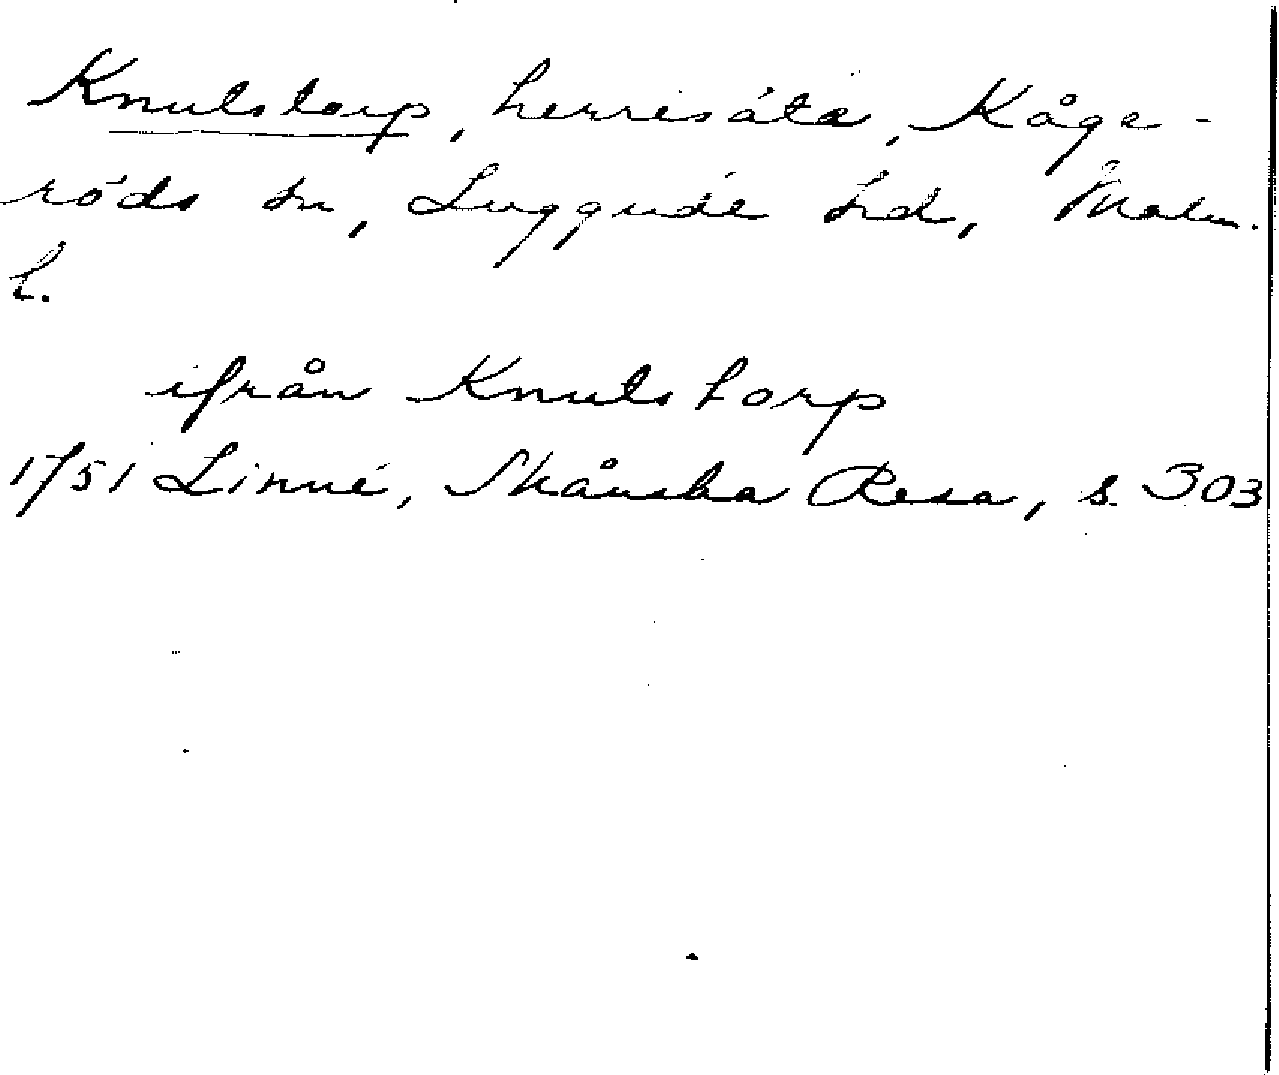 Knutstorp, herresäte, Kåge-
röds sn, Luggude hd, Malm.
l.
ifrån Knutstorp
1751 Linné, Skånska Resa, s. 303